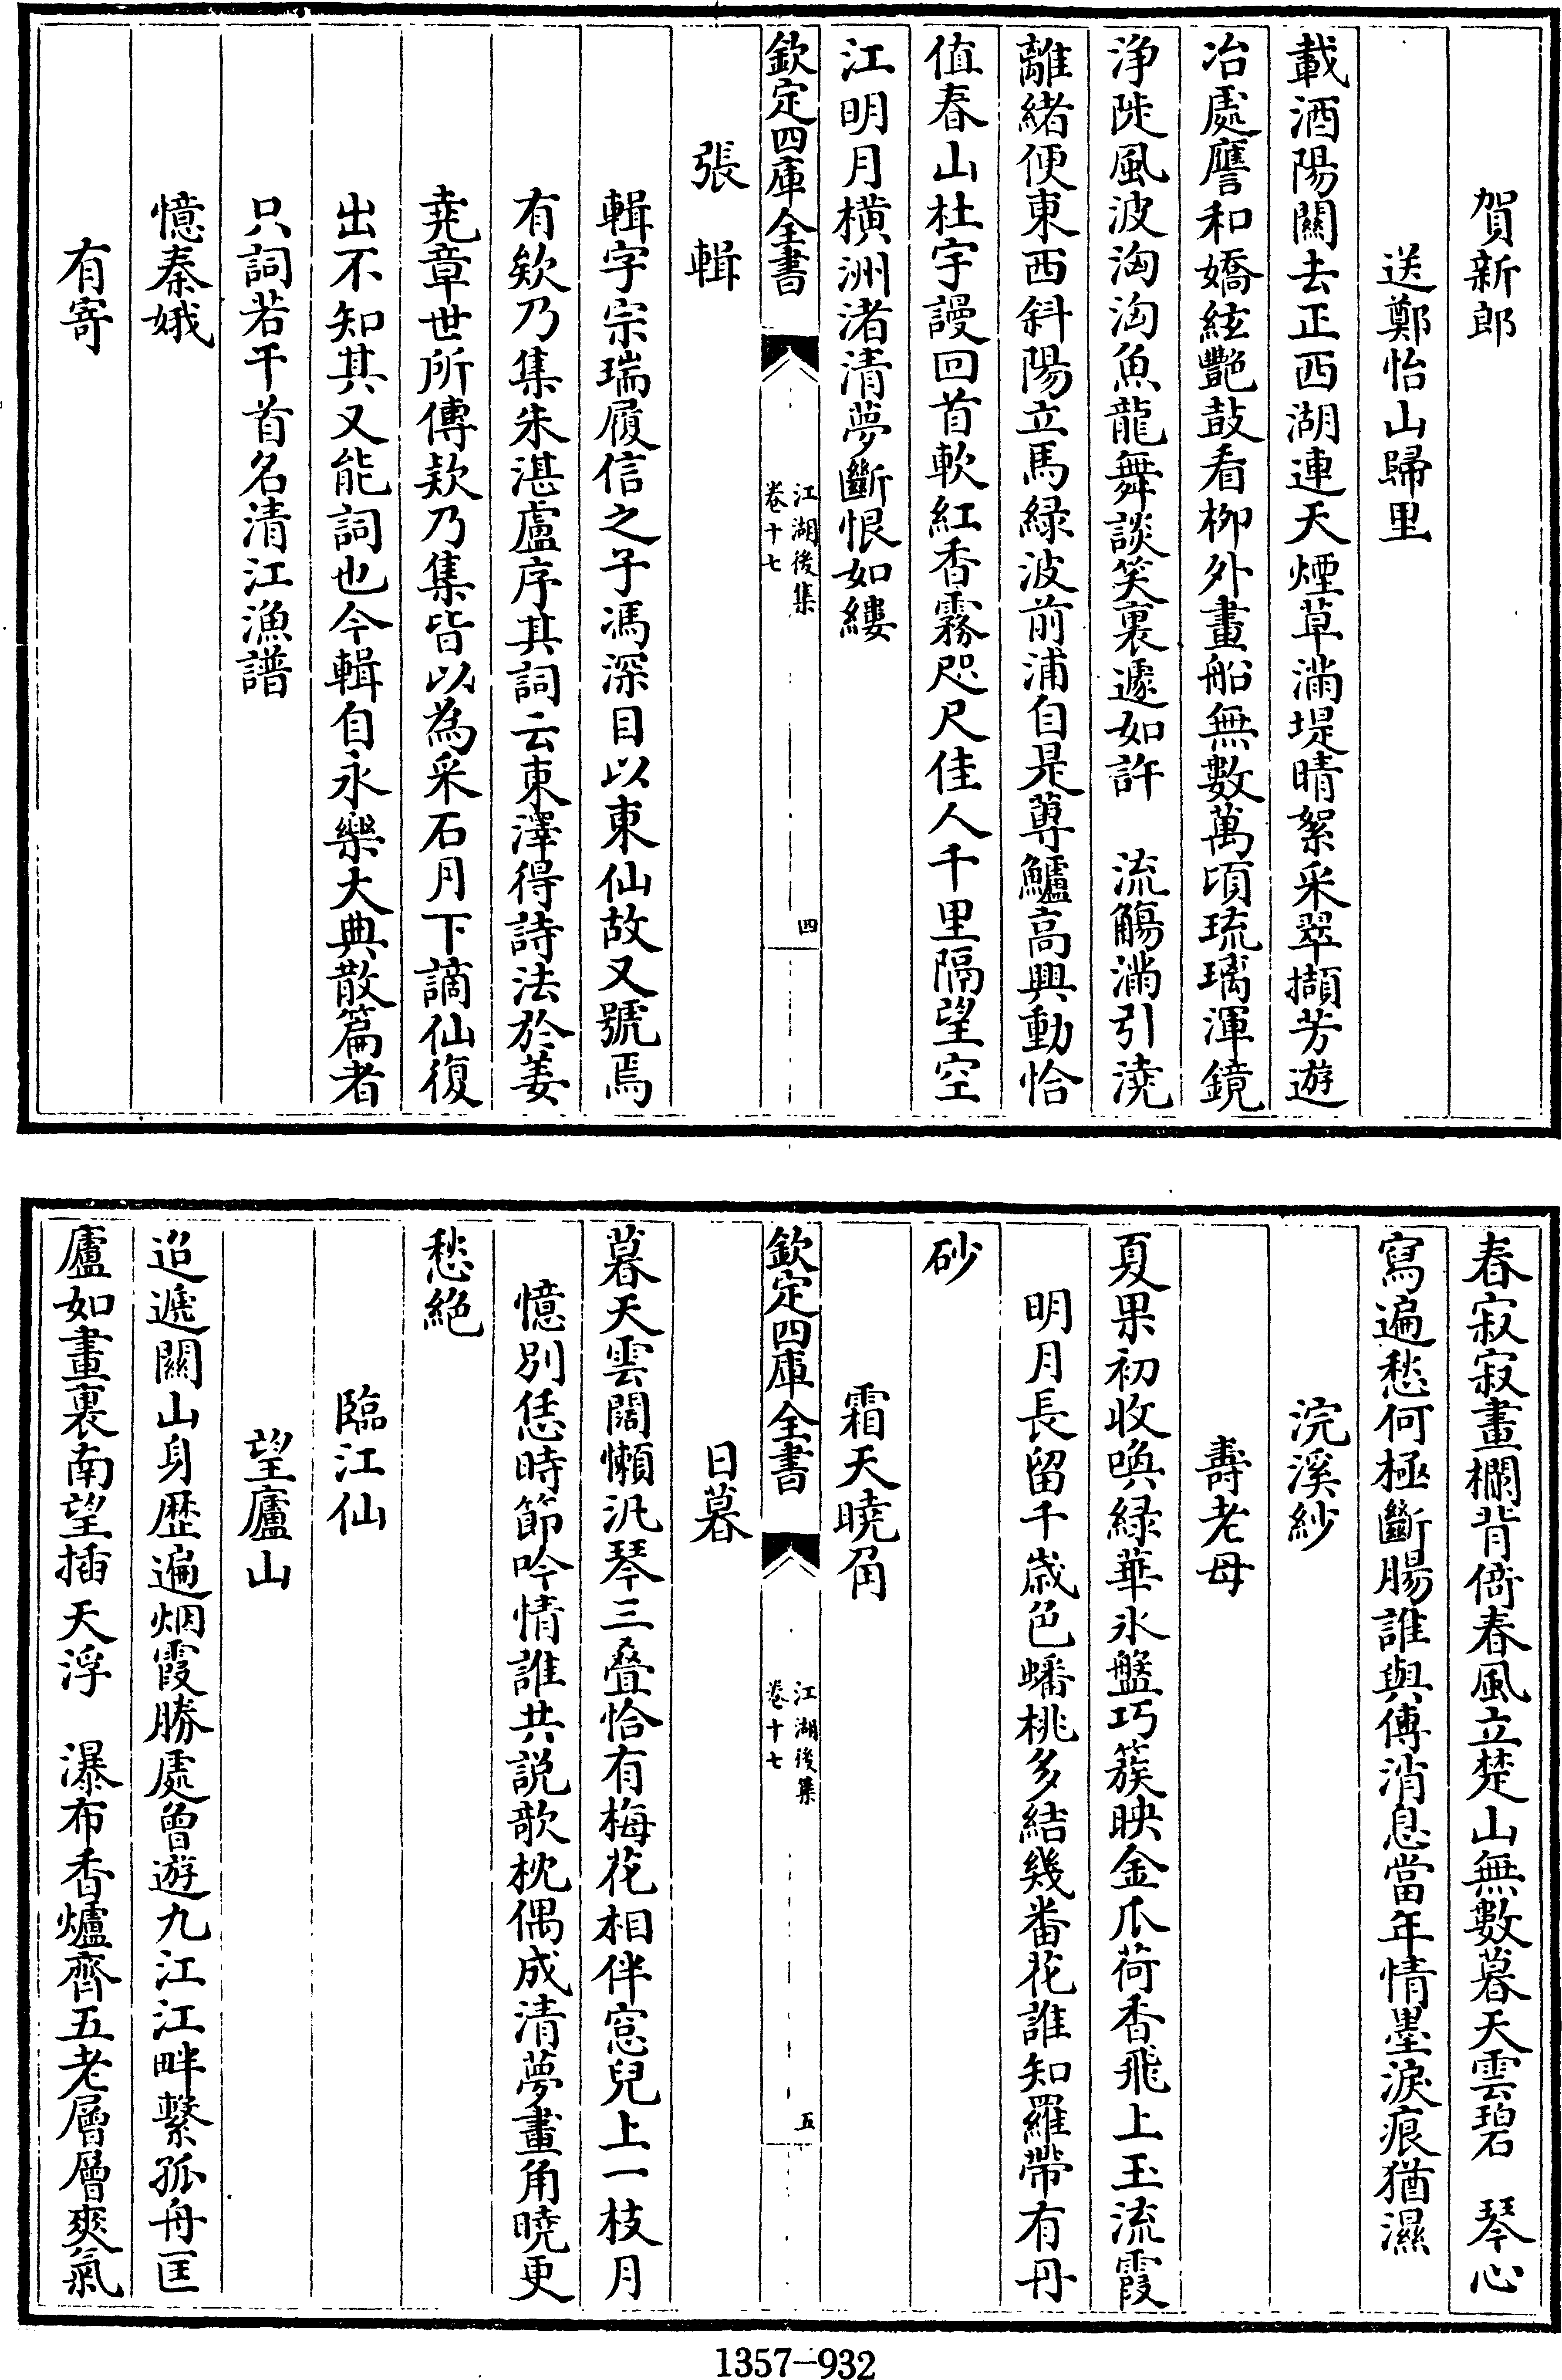 賀新郎
送鄭怡山歸里
載酒陽關去正西湖連天煙草滿堤晴絮采翠擷芳遊
冶處譍和嬌絃艷鼓看栁外畫船無數萬頃琉璃渾鏡
浄陡風波洶洶魚龍舞談笑裏遽如許　流觴滿引澆
離緒便東西斜陽立馬緑波前浦自是蓴鱸高興動恰
值春山杜宇謾回首軟紅香霧咫尺佳人千里隔望空
江明月橫洲渚清夢斷恨如縷
欽定四庫全書
江湖後集
卷十七
四
張　輯
輯字宗瑞履信之子馮深目以東仙故又號焉
有欸乃集朱湛盧序其詞云東澤得詩法於姜
堯章世所傳欵乃集皆以為采石月下謫仙復
出不知其又能詞也今輯自永樂大典散篇者
只詞若干首名清江漁譜
憶秦娥
有寄
春寂寂畫欄背倚春風立楚山無數暮天雲碧　琴心
寫遍愁何極斷腸誰與傳消息當年情墨淚痕猶濕
浣溪紗
壽老母
夏果初收喚緑華氷盤巧簇映金瓜荷香飛上玉流霞
明月長留千歲色蟠桃多結幾番花誰知羅帶有丹
砂
霜天曉角
欽定四庫全書
江湖後集
卷十七
五
日暮
暮天雲闊懶汎琴三叠恰有梅花相伴窓兒上一枝月
憶別恁時節吟情誰共説欹枕偶成清夢畫角曉更
愁絕
臨江仙
望廬山
迢遞關山身歴遍烟霞勝處曾遊九江江畔繫孤舟匡
廬如畫裏南望插天浮　瀑布香爐齊五老層層爽氣
1357—932